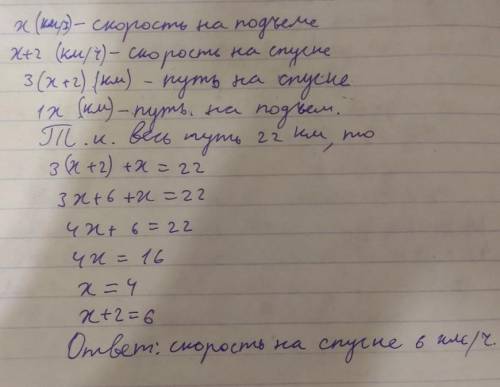 x (км/ч) – скорость на подъеме
x+2 (км/ч) – скорость на спуске
3(x+2) (км) – путь на спуске
1x (км) – путь на подъем.
Т.к. весь путь 22 км, то
3(x+2)+x=22
3x+6+x=22
4x+6=22
4x=16
x=4
x+2=6
Ответ: скорость на спуске 6 км/ч.